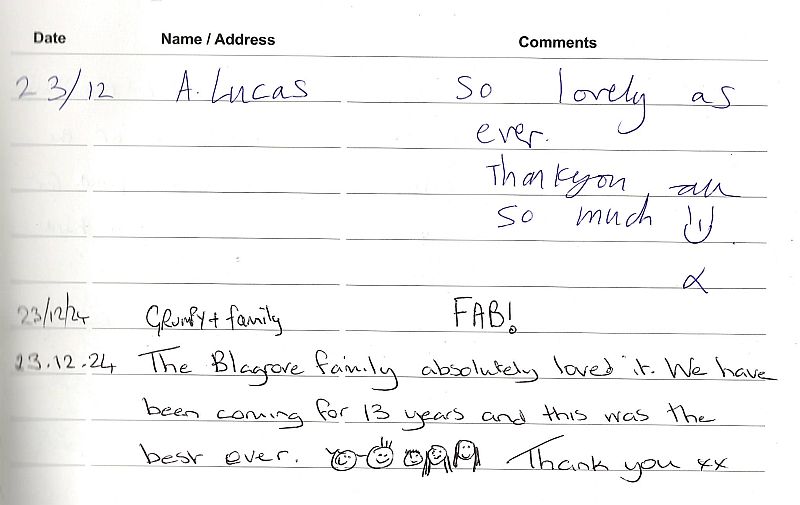 Date Name / Address Comments
23/12 A. Lucas So lovely as
ever.
Thankyou all
So much
x
23/12/24 Grumpy + family FAB!
23.12.24 The Blagrove family absolutely loved it. We have
been coming for 13 years and this was the
best ever. Thank you xx